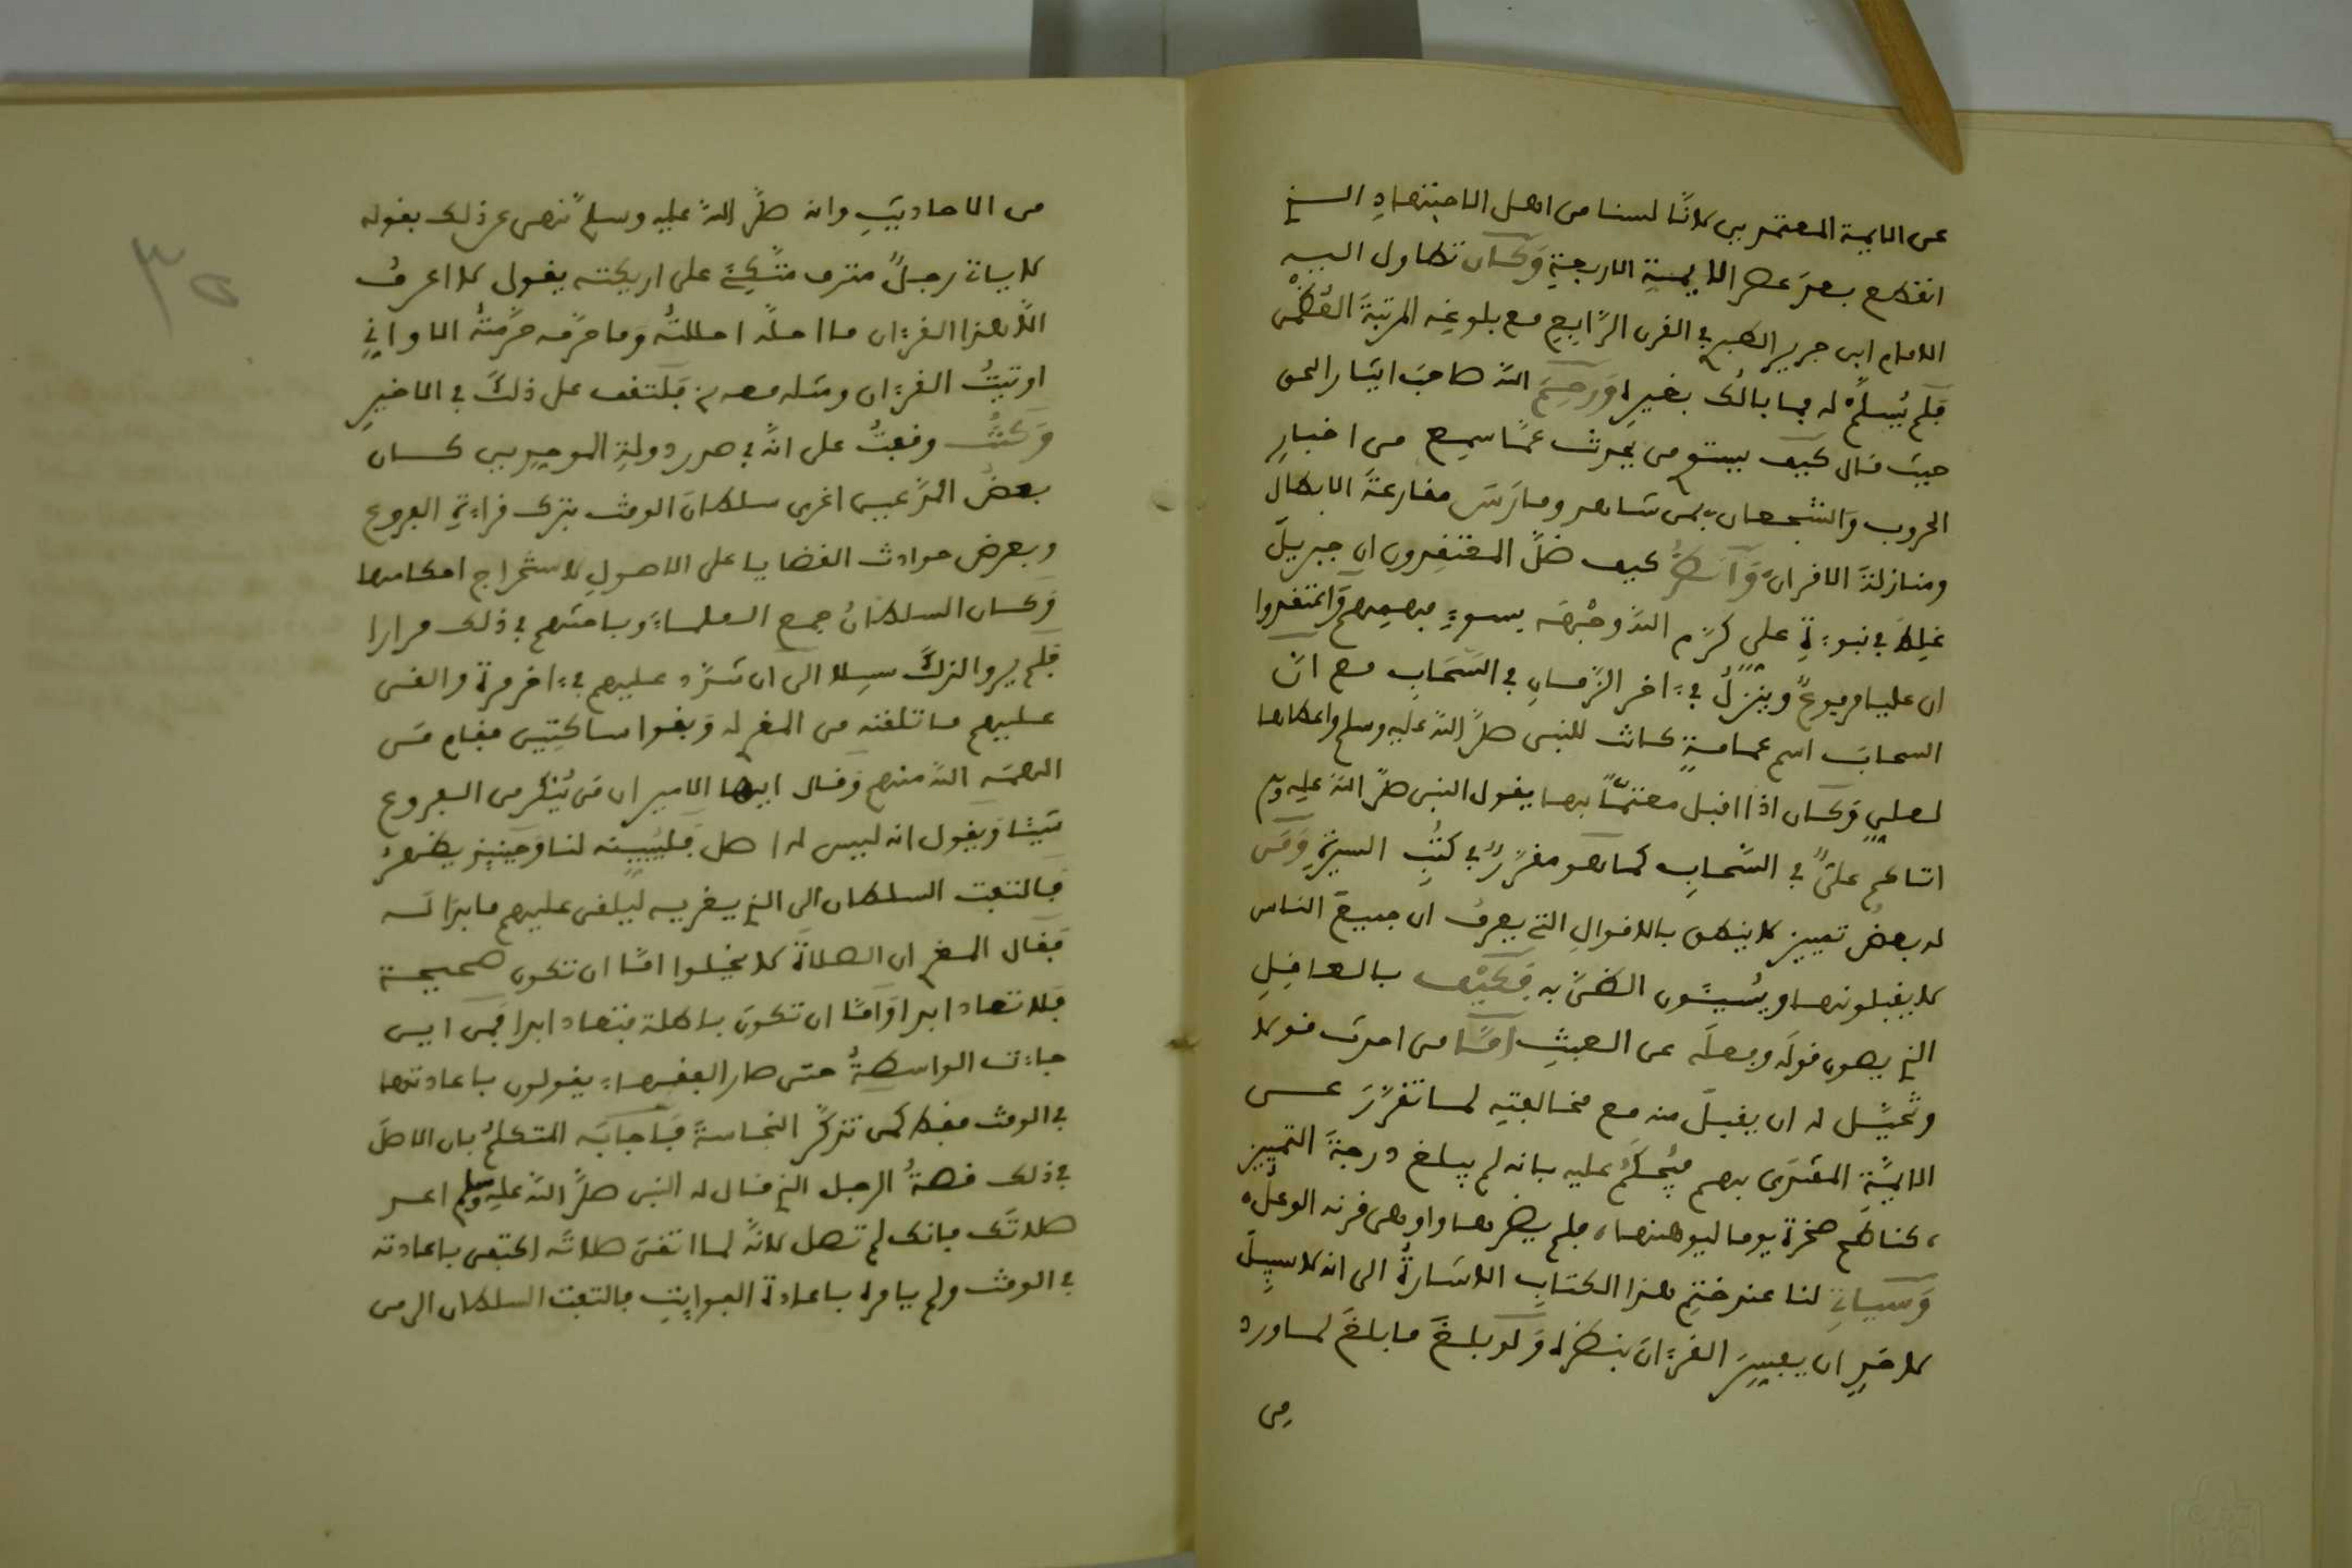 عن الايمة المعتمدين لانا لسنا من اهل الاجتهاد الذي
انقطع بعد عصر الايمة الاربعة وكان تطاول اليه
الامام ابن جرير الطبري في القرن الرابع مع بلوغه المرتبة العظمى
فلم يسلم له فما بالك بغيره ورحم الله صاحب ايثار الحق
حيث قال كيف يستوي من يحدث عما سمع من اخبار
الحروب والشجعان بمن شاهد ومارس مقارعة الابطال
ومنازلة الاقران وانظر كيف ضل المعتقدون ان جبريل
غلط في نبوءة علي كرم الله وجهه بسوء فهمهم واعتقدوا
ان عليا مرفوع وينزل في ءاخر الزمان في السحاب مع ان
السحاب اسم عمامة كانت للنبي صلى الله عليه وسلم واعطاها
لعلي وكان اذا اقبل معتما بها يقول النبي صلى الله عليه وسلم
اتاكم علي في السحاب كما هو مقرر في كتب السيرة ومن
له بعض تمييز لا ينطق بالاقوال التي يعرف ان جميع الناس
لا يقبلونها ويسيئون الظن به فكيف بالعاقل
الذي يصون قوله وفعله عن العبث اما من احدث قولا
وتخيل له ان يقبل منه مع مخالفته لما تقرر عن
الايمة المقتدى بهم فيحكم عليه بانه لم يبلغ درجة التمييز
كناطح صخرة يوما ليوهنها، فلم يضرها واوهى قرنه الوعل ه
وسياتي لنا عند ختم هذا الكتاب الاشارة الى انه لا سبيل
لاحد ان يفسر القرءان بنظره ولو بلغ ما بلغ لما ورد
من
من الاحاديث وانه صلى الله عليه وسلم نهى عن ذلك بقوله
لا ياتي رجل مترف متكئ على اريكته يقول لا اعرف
الا هذا القرءان ما احله احللته وما حرمه حرمته الا واني
اوتيت القرءان ومثله معه فلتقف على ذلك في الاخير
وكنت وقفت على انه في صدر دولة الموحدين كان
بعض المدعيين اغرى سلطان الوقت بترك قراءة الفروع
وبعرض حوادث القضايا على الاصول لاستخراج احكامها
وكان السلطان جمع العلماء وباحثهم في ذلك مرارا
فلم يروا لذلك سبيلا الى ان شدد عليهم في ءاخر مرة والقى
عليهم ما تلقنه من المغري له وبقوا ساكتين فقام من
الهمه الله منهم وقال ايها الامير ان من ينكر من الفروع
شيئا ويقول انه ليس له اصل فليبينه لنا وحينئذ يظهر
فالتفت السلطان الى الذي يغريه ليلقى عليهم ما بدا له
فقال المغري ان الصلاة لا يخلوا اما ان تكون صحيحة
فلا تعاد ابدا واما ان تكون باطلة فتعاد ابدا فمن اين
جاءت الواسطة حتى صار الفقهاء يقولون باعادتها
في الوقت فقط كمن تذكر النجاسة فاجابه المتكلم بان الاصل
في ذلك قصة الرجل الذي قال له النبي صلى الله عليه وسلم اعد
صلاتك فانك لم تصل لانه لما اتقن صلاته اكتفى باعادته
في الوقت ولم يامره باعادة الفوايت فالتفت السلطان الى من
٣٥